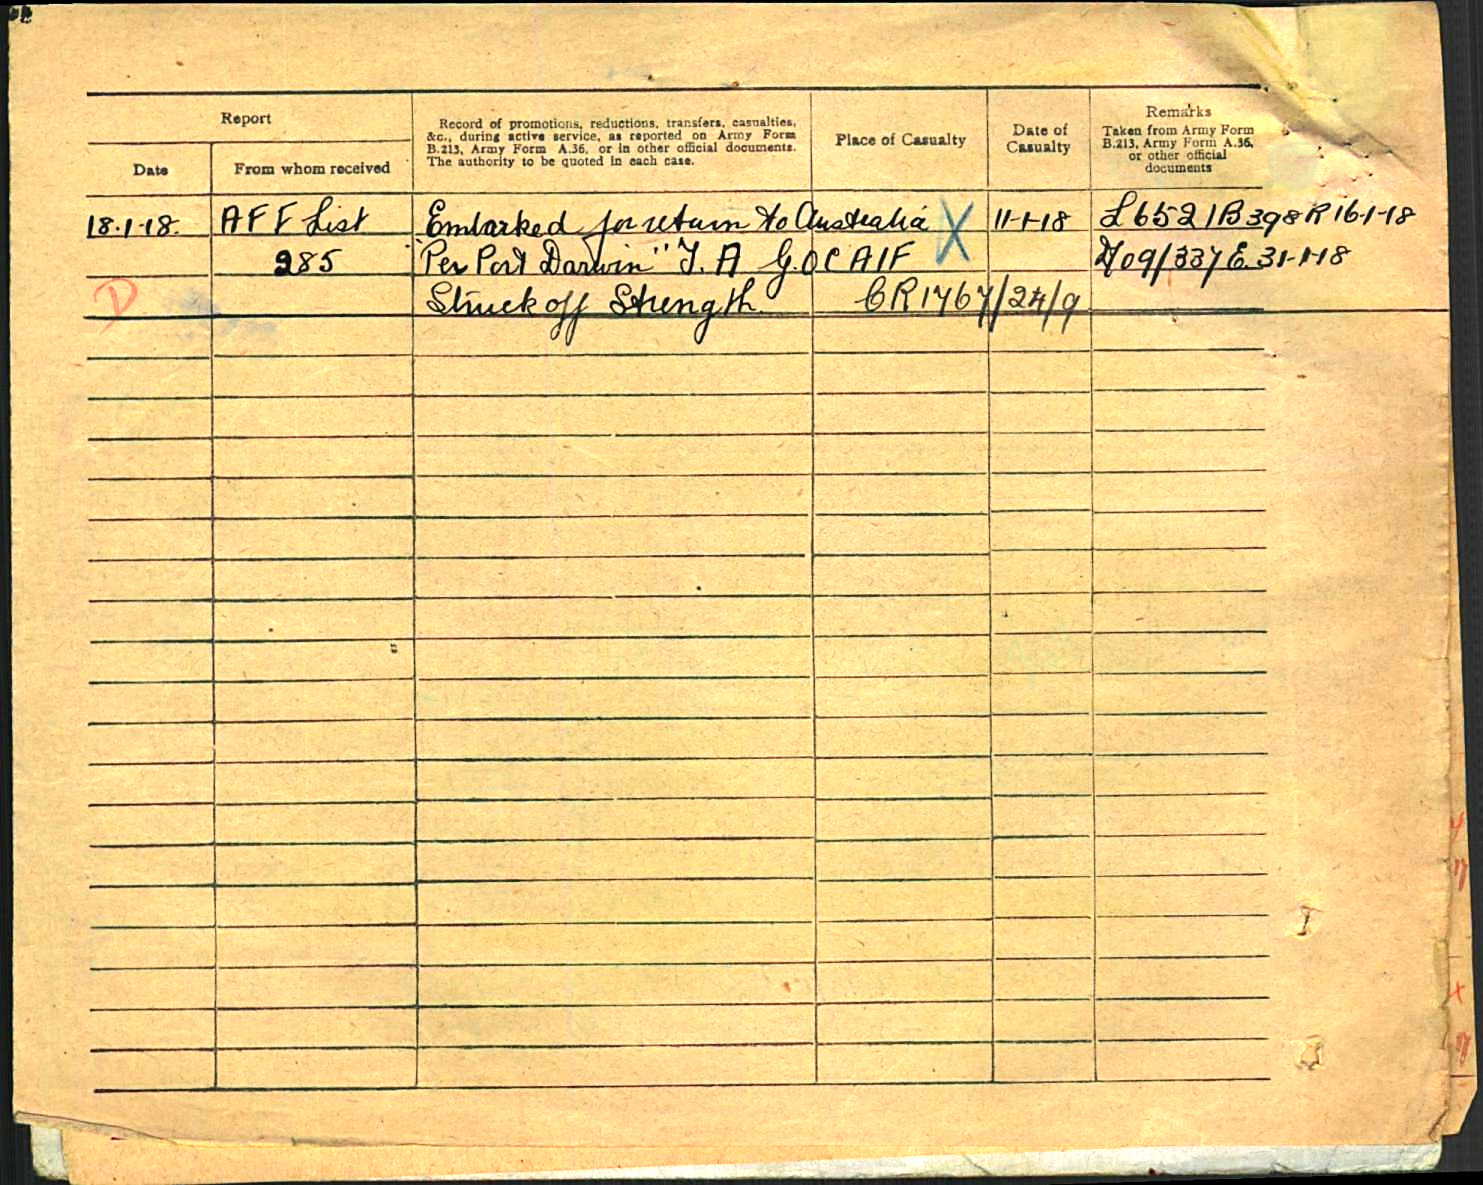 Report
Record of promotions, reductions, transfers, casualties,
&c., during active service, as reported on Army Form
B.213, Army Form A.36, or in other official documents.
The authority to be quoted in each case.
Place of Casualty
Date of
Casualty
Remarks
Taken from Army Form
B.213, Army Form A.36,
or other official
documents
Date
From whom received
18.1.18. AFF List Embarked for return to Australia X 11-1-18 L6521B398R 16-1-18
285 "Per Port Darwin" Y. A G.OC AIF 31-1-18
D Struck off Strength. CR1767/24/9